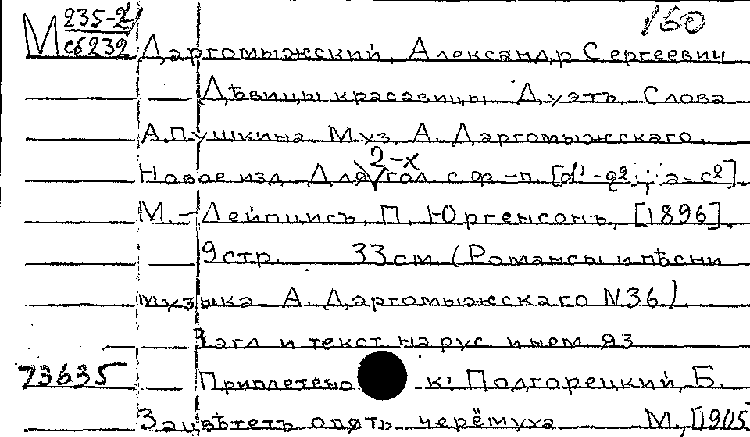 М 235-2/сб239 160
Даргомыжский, Александр Сергеевич
Дѣвицы красавицы. Дуэтъ. Слова
А. Пушкина. Муз. А. Даргомыжскаго.
Новое изд. Для 2-х гол. с ф.-п. [d¹-g²; a-c²]
М. - Лейпцигъ, П. Юргенсонъ, [1896].
9 стр. 33 см. (Романсы и пѣсни
музыка А. Даргомыжскаго №36)
Загл. и текст на рус. и нем. яз.
73635 Приплетено к: Подгорецкий, Б.
Зацвѣтетъ опять черёмуха М., [1905